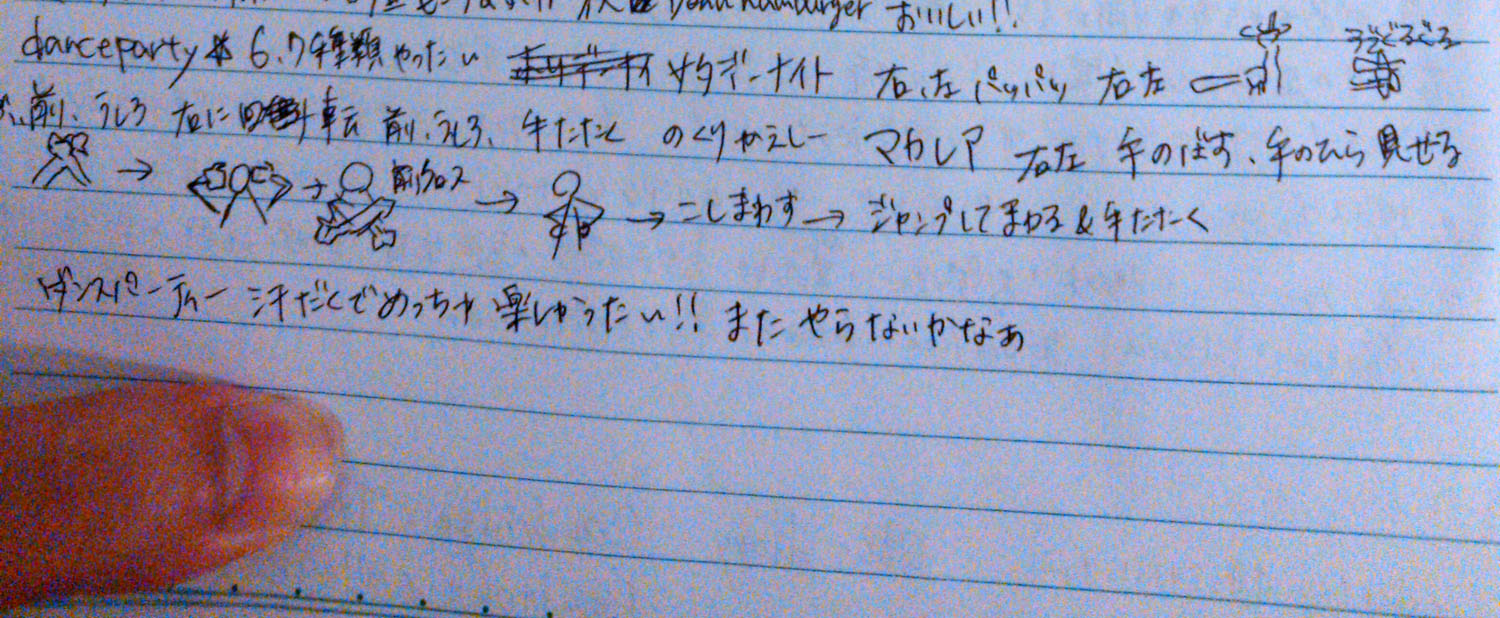 hamburger おいしい!!
danceparty は 6.7種類やったい サタデーナイト 右、左 パッパッ 右左 ぐるぐる
前、うしろ 右に回転 前、うしろ、手たたく のくりかえしー マカレア 右左 手のばす、手のひら見せる
→ → 前クロス → → こしまわす → ジャンプしてまわる&手たたく
ダンスパーティー 汗だくでめっちゃ楽しかったい!! またやらないかなぁ